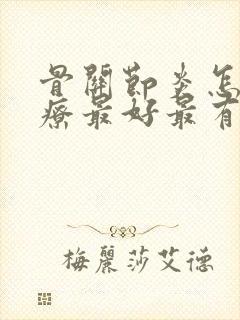 骨關節炎怎
療最好最有
梅麗莎艾德